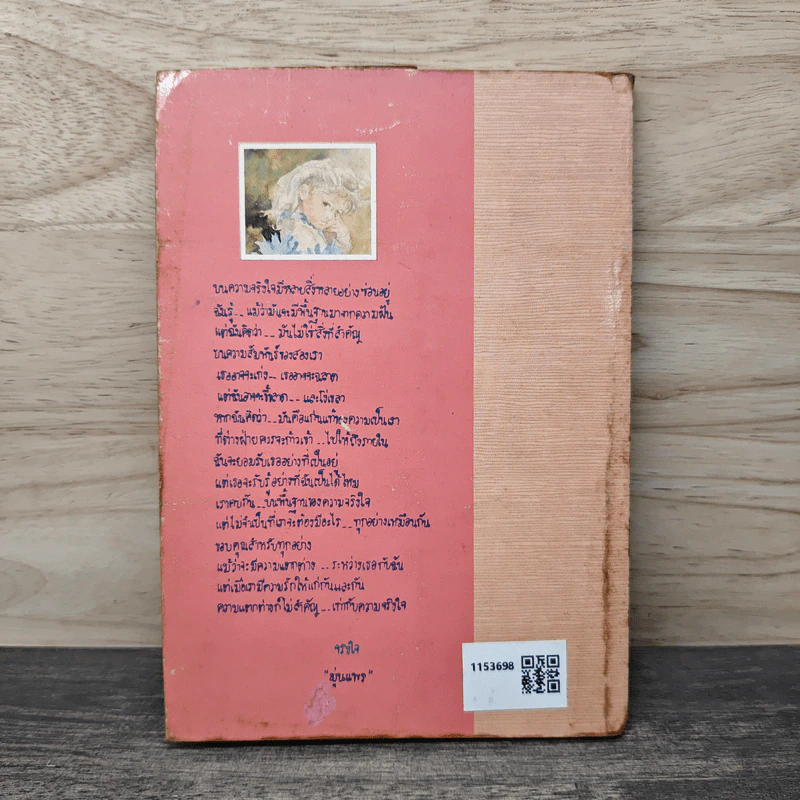 บนความจริงใจมีหลายสิ่งหลายอย่างซ่อนอยู่
ฉันรู้.. แม้ว่ามันจะมีพื้นฐานมาจากความฝัน
แต่ฉันคิดว่า.. มันไม่ใช่สิ่งที่สำคัญ
บนความสัมพันธ์ของสองเรา
เธออาจจะเก่ง.. เธออาจจะฉลาด
แต่ฉันอาจจะขี้ขลาด.. และโง่เขลา
หากฉันคิดว่า..มันคือแก่นแท้ของความเป็นเรา
ที่ต่างฝ่ายควรจะก้าวเข้า..ไปให้ถึงภายใน
ฉันจะยอมรับเธออย่างที่เป็นอยู่
แต่เธอจะรับรู้อย่างที่ฉันเป็นได้ไหม
เราคบกัน..บนพื้นฐานของความจริงใจ
แต่ไม่จำเป็นที่เราจะต้องมีอะไร..ทุกอย่างเหมือนกัน
ขอบคุณสำหรับทุกอย่าง
แม้ว่าจะมีความแตกต่าง..ระหว่างเธอกับฉัน
แต่เมื่อเรามีความรักให้แก่กันและกัน
ความแตกต่างก็ไม่สำคัญ..เท่ากับความจริงใจ
จริงใจ
1153698